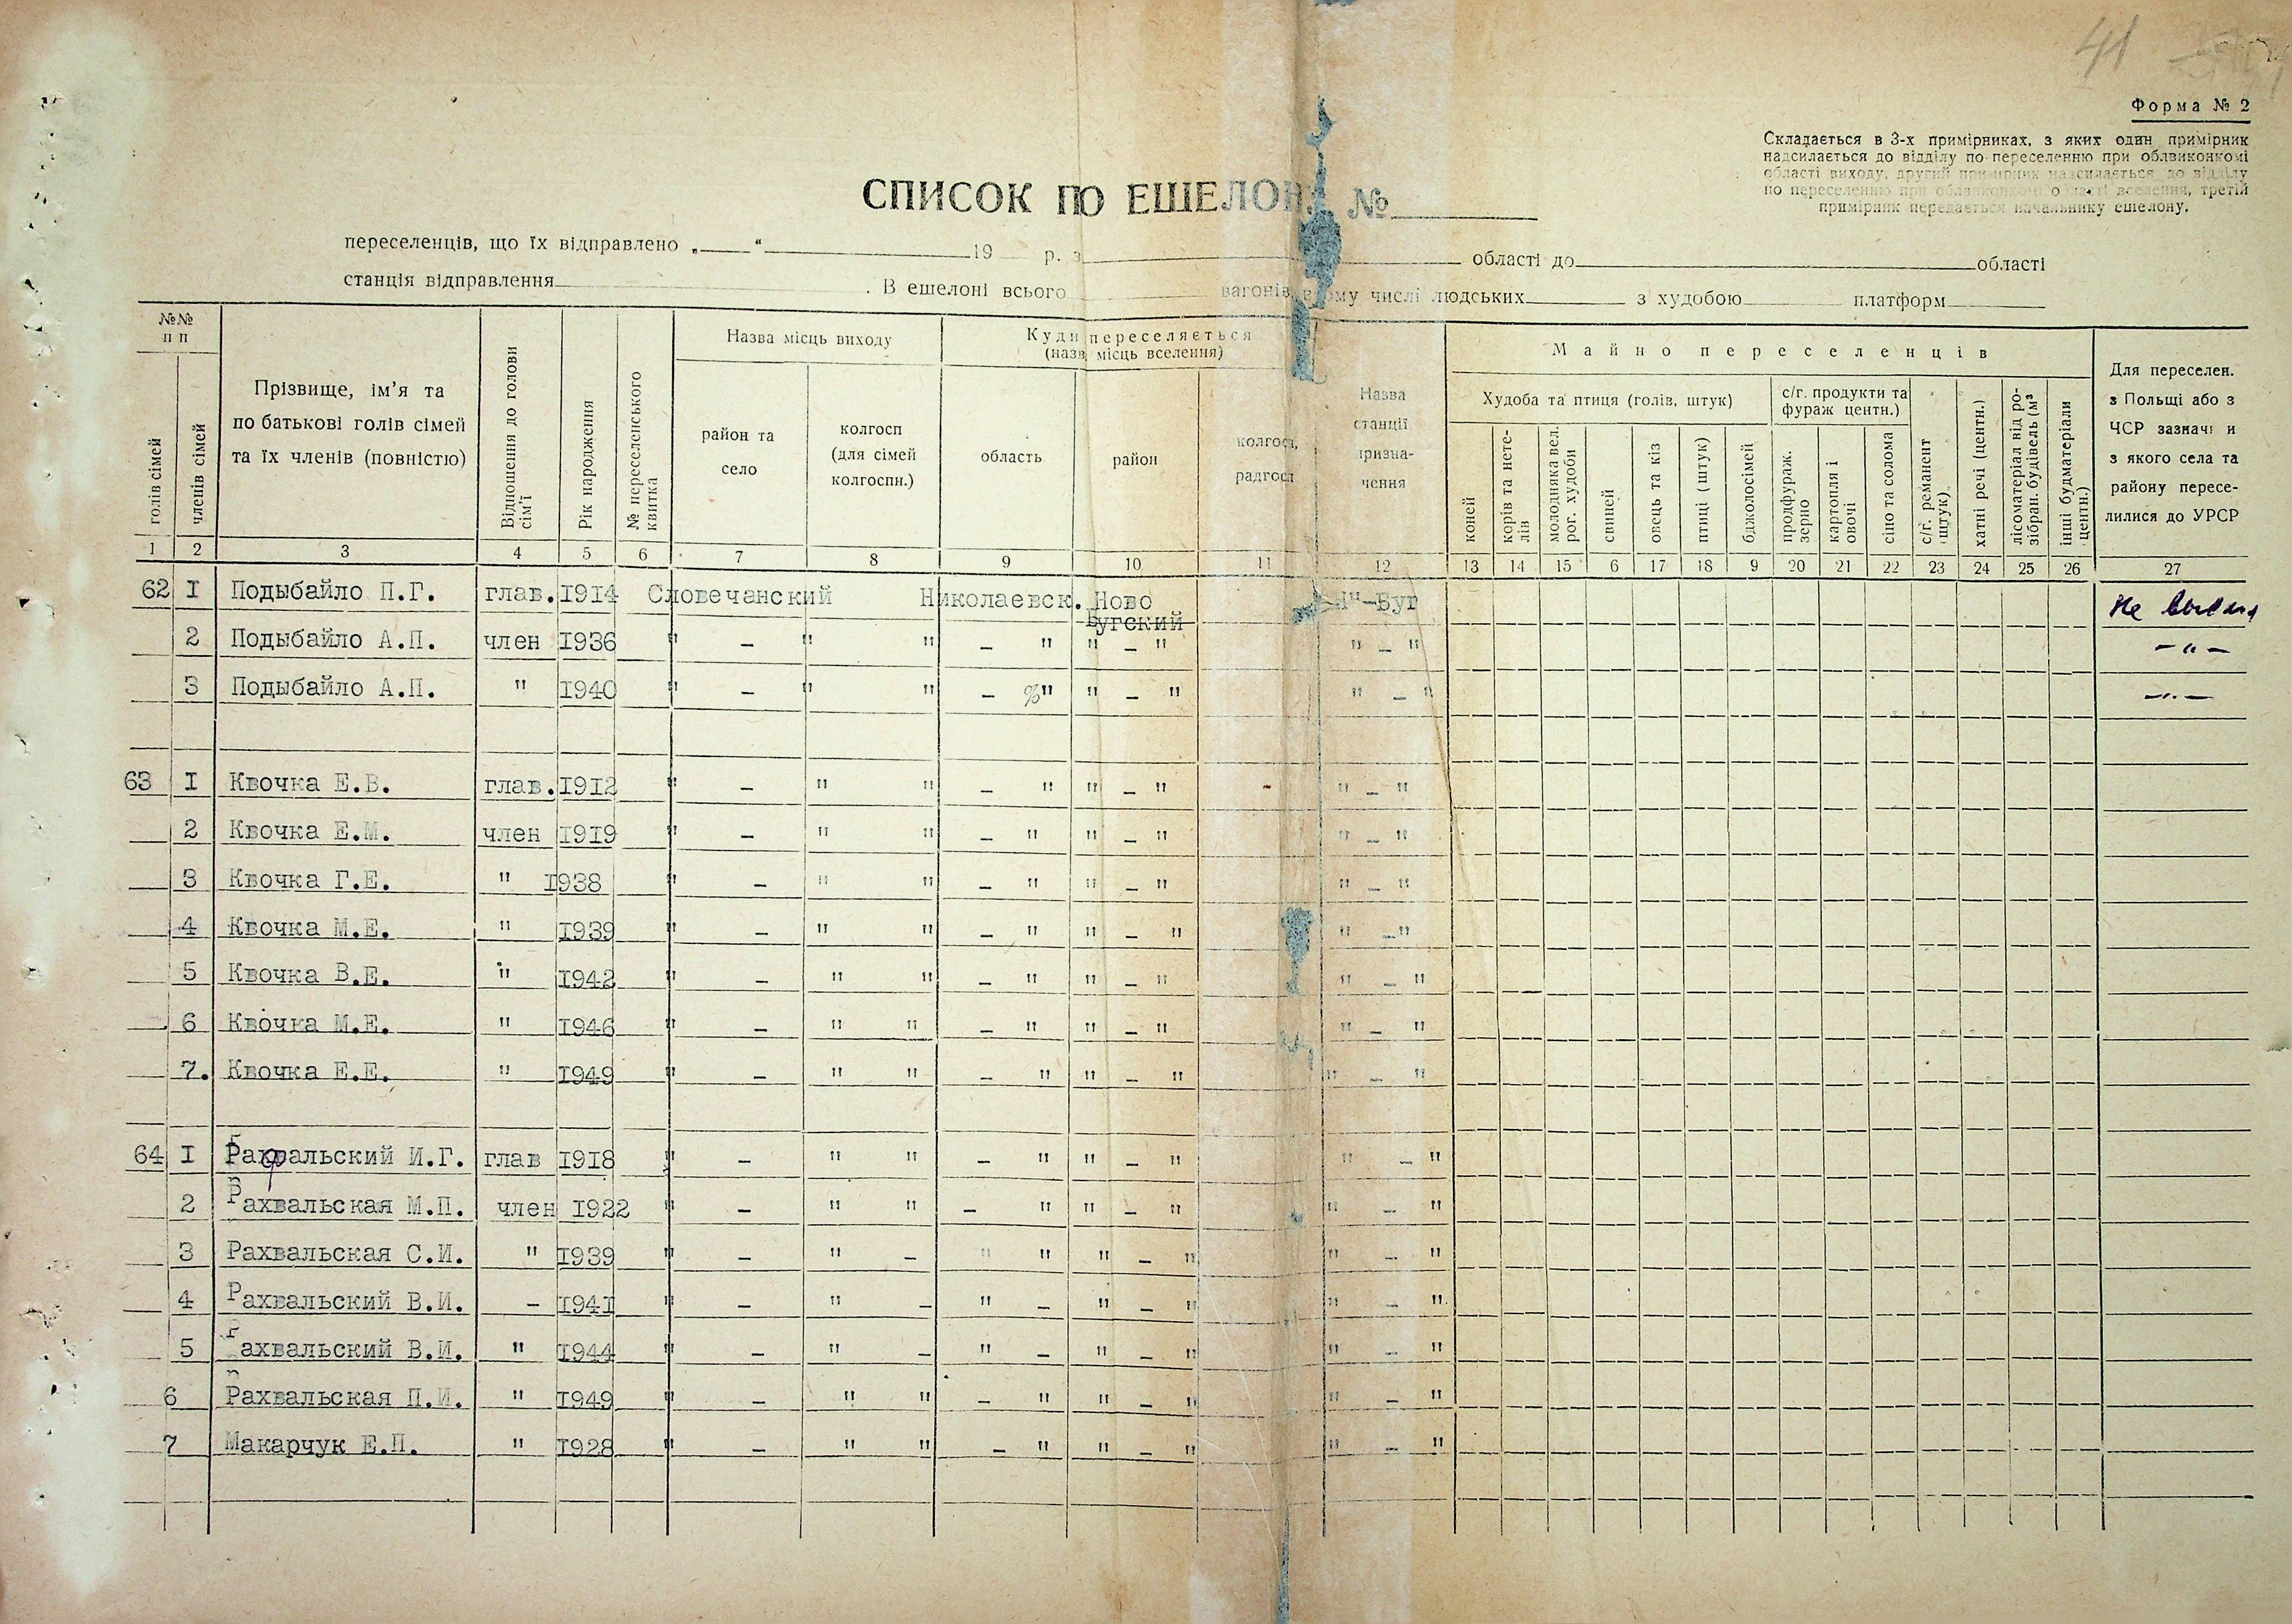 41
Форма № 2
Складається в 3-х примірниках, з яких один примірник
надсилається до відділу по переселенню при облвиконкомі
області виходу, другий примірник надсилається до відділу
по переселенню при облвиконкомі області вселення, третій
примірник передається начальнику ешелону.
СПИСОК ПО ЕШЕЛОН №
переселенців, що їх відправлено „ “ 19 р. з області до області
станція відправлення . В ешелоні всього вагонів, в тому числі людських з худобою платформ
№№ п п
голів сімей
членів сімей
Прізвище, ім’я та по батькові голів сімей та їх членів (повністю)
Відношення до голови сім’ї
Рік народження
№ переселенського квитка
Назва місць виходу
район та село
колгосп (для сімей колгоспн.)
Куди переселяється
(назва місць вселення)
область
район
колгосп, радгосп
Назва станції призна- чення
Майно переселенців
Худоба та птиця (голів, штук)
коней
корів та нете- лів
молодняка вел. рог. худоби
свиней
овець та кіз
птиці (штук)
бджолосімей
с/г. продукти та фураж центн.)
продфураж. зерно
картопля і овочі
сіно та солома
с/г. реманент штук)
хатні речі (центн.)
лісоматеріал від ро- зібран. будівель (м³
інші будматеріали центн.)
Для переселен. з Польщі або з ЧСР зазначи и з якого села та району пересе- лилися до УРСР
1 2 3 4 5 6 7 8 9 10 11 12 13 14 15 6 17 18 9 20 21 22 23 24 25 26 27
62 I Подыбайло П.Г. глав. 1914 Словечанский Николаевск. Ново Бугский Н-Буг Не
2 Подыбайло А.П. член 1936 " – " " – " " – " " – " – " –
3 Подыбайло А.П. " 1940 " – " " – " " – " " – " – " –
63 I Квочка Е.В. глав. 1912 " – " " – " " – " " – "
2 Квочка Е.М. член 1919 " – " " – " " – " " – "
3 Квочка Г.Е. " 1938 " – " " – " " – " " – "
4 Квочка М.Е. " 1939 " – " " – " " – " " – "
5 Квочка В.Е. " 1942 " – " " – " " – " " – "
6 Квочка М.Е. " 1946 " – " " – " " – " " – "
7. Квочка Е.Е. " 1949 " – " " – " " – " " – "
64 I Рахвальский И.Г. глав 1918 " – " " – " " – " " – "
2 Рахвальская М.П. член 1922 " – " " – " " – " " – "
3 Рахвальская С.И. " 1939 " – " – " " " – " " – "
4 Рахвальский В.И. – 1941 " – " – " – " – " " – "
5 Рахвальский В.И. " 1944 " – " – " – " – " " – "
6 Рахвальская П.И. " 1949 " – " " – " " – " " – "
7 Макарчук Е.П. " 1928 " – " " – " " – " " – "